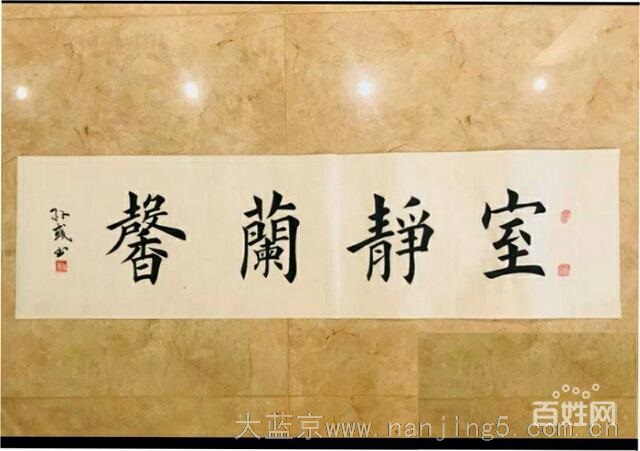 室靜蘭馨
孙彧书
百姓网
大蓝京www.nanjing5.com.cn